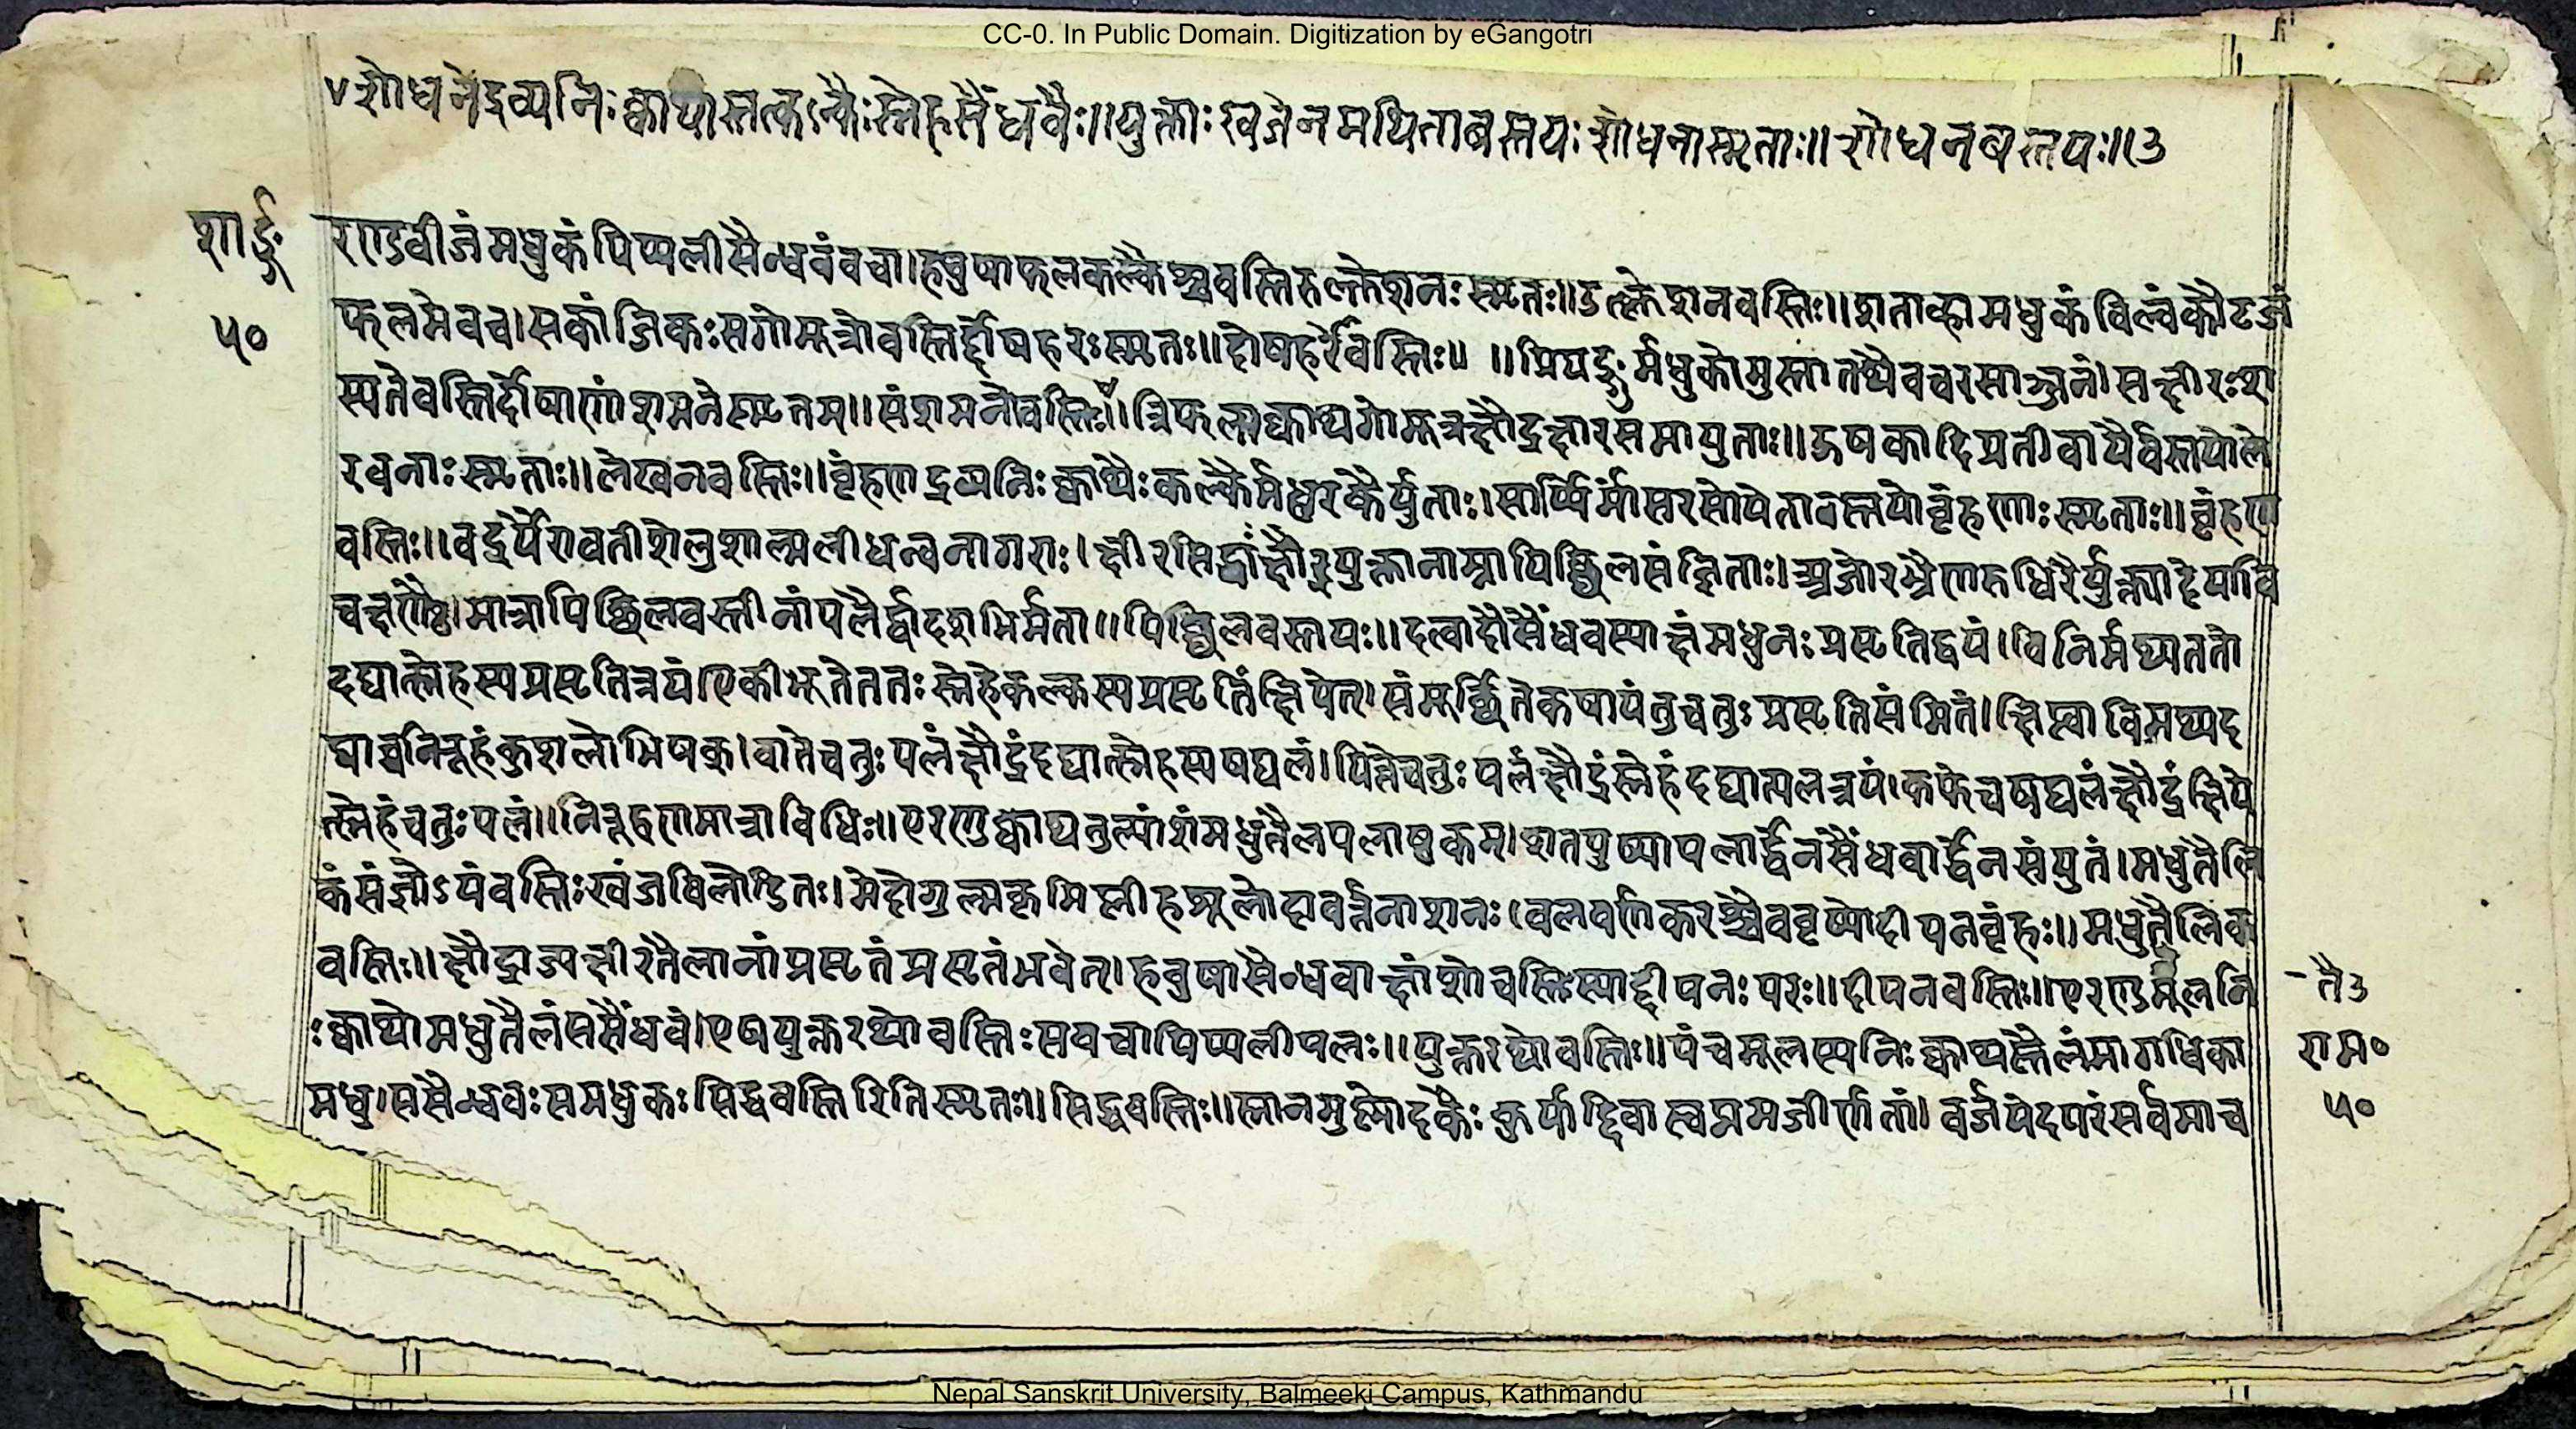 CC-0. In Public Domain. Digitization by eGangotri
शोधनेद्रव्यनिःक्वाथास्तत्कल्कैःस्नेहसैंधवैः॥युक्ताःखजेनमथिताबस्तयःशोधनास्मृताः॥शोधनबस्तयः॥३
शार्ङ्ग
रण्डबीजंमधुकंपिप्पलीसैन्धवंवचा।हबुषाफलकल्कैश्चवस्तिरुत्क्लेशनःस्मृतः॥उत्क्लेशनवस्तिः॥शताह्वामधुकंविल्वंकौटजं
५०
फलमेवच।सकांजिकःसगोमूत्रोवस्तिर्द्दोषहरःस्मृतः॥दोषहरोवस्तिः॥ ॥प्रियङ्गुर्मधुकोमुस्तातथैवचरसाञ्जनं।सक्षीरःश
स्यतेवस्तिर्दोषाणांशमनेस्मृतम्॥संशमनोवस्तिः॥त्रिफलाक्वाथगोमूत्रक्षौद्रक्षारसमायुताः॥ऊषकादिप्रतीवापैर्वस्तयोले
खनाःस्मृताः॥लेखनवस्तिः॥वृंहणद्रव्यनिःक्वाथैःकल्कैर्मधुरकैर्युताः।सर्पिर्मांसरसोपेतावस्तयोवृंहणाःस्मृताः॥वृंहण
वस्तिः॥वदर्यैरावतीशेलुशाल्मलीधन्वनागराः।क्षीरसिद्धाःक्षौद्रयुक्तानाम्नापिच्छिलसंज्ञिताः।अजोरभ्रैणरुधिरैर्युक्तादेयावि
चक्षणैः।मात्रापिच्छिलवस्तीनांपलैर्द्वादशभिर्मता॥पिच्छिलवस्तयः॥दत्वादौसैंधवस्याक्षंमधुनःप्रसृतिद्वयं।विनिर्मथ्यततो
दद्यात्स्नेहस्यप्रसृतित्रयं।एकीभूतेततःस्नेहेकल्कस्यप्रसृतिंक्षिपेत्।संमूर्छितेकषायंतुचतुःप्रसृतिसंमितं।क्षिप्त्वाविमथ्यद
द्याच्चनिरूहंकुशलोभिषक्।वातेचतुःपलंक्षौद्रंदद्यात्स्नेहस्यषट्पलं।पित्तेचतुःपलंक्षौद्रंस्नेहंदद्यात्पलत्रयं।कफेचषट्पलंक्षौद्रंक्षिपे
त्स्नेहंचतुःपलं॥निरूहणमात्राविधिः॥एरण्डक्वाथतुल्यांशंमधुतैलपलाष्टकम्।शतपुष्पापलार्द्धेनसैंधवार्द्धेनसंयुतं।मधुतैलि
कंसंज्ञोऽयंवस्तिःखजविलोडितः।मेदोगुल्मकृमिप्लीहमूलोदावर्त्तनाशनः।वलवर्णकरश्चैववृष्योदीपनवृंहः॥मधुतैलिक
वस्तिः॥क्षौद्राज्यक्षीरतैलानांप्रसृतंप्रसृतंभवेत्।हबुषासैन्धवाक्षांशोवस्तिःस्याद्दीपनःपरः॥दीपनवस्तिः॥एरण्डमूलनि
-तै३
ःक्वाथोमधुतैलंससैंधवं।एषयुक्तरथोवस्तिःसवचापिप्पलीफलः॥युक्तरथोवस्तिः॥पंचमूलस्यनिःक्वाथस्तैलंमागधिका
राम०
मधु।ससैन्धवःसमधुकःसिद्धवस्तिरितिस्मृतः॥सिद्धवस्तिः॥स्नानमुष्णोदकैःकुर्याद्दिवास्वप्नमजीर्णतां।वर्जयेदपरंसर्वमाच
५०
Nepal Sanskrit University, Balmeeki Campus, Kathmandu